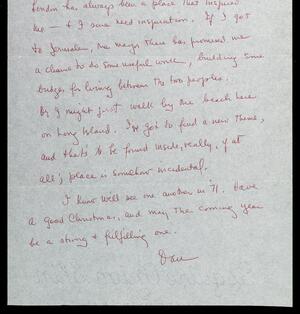 London has always been a place that inspired
me — & I sure need inspiration. If I got
to Jerusalem, the mayor there has promised me
a chance to do some useful work, building some
bridges for living between the two peoples.
Or I might just walk by the beach here
on Long Island. I've got to find a new theme,
and that's to be found inside, really, if at
all; place is somehow incidental.
I know we'll see one another in '71. Have
a good Christmas, and may the coming year
be a strong & fulfilling one.